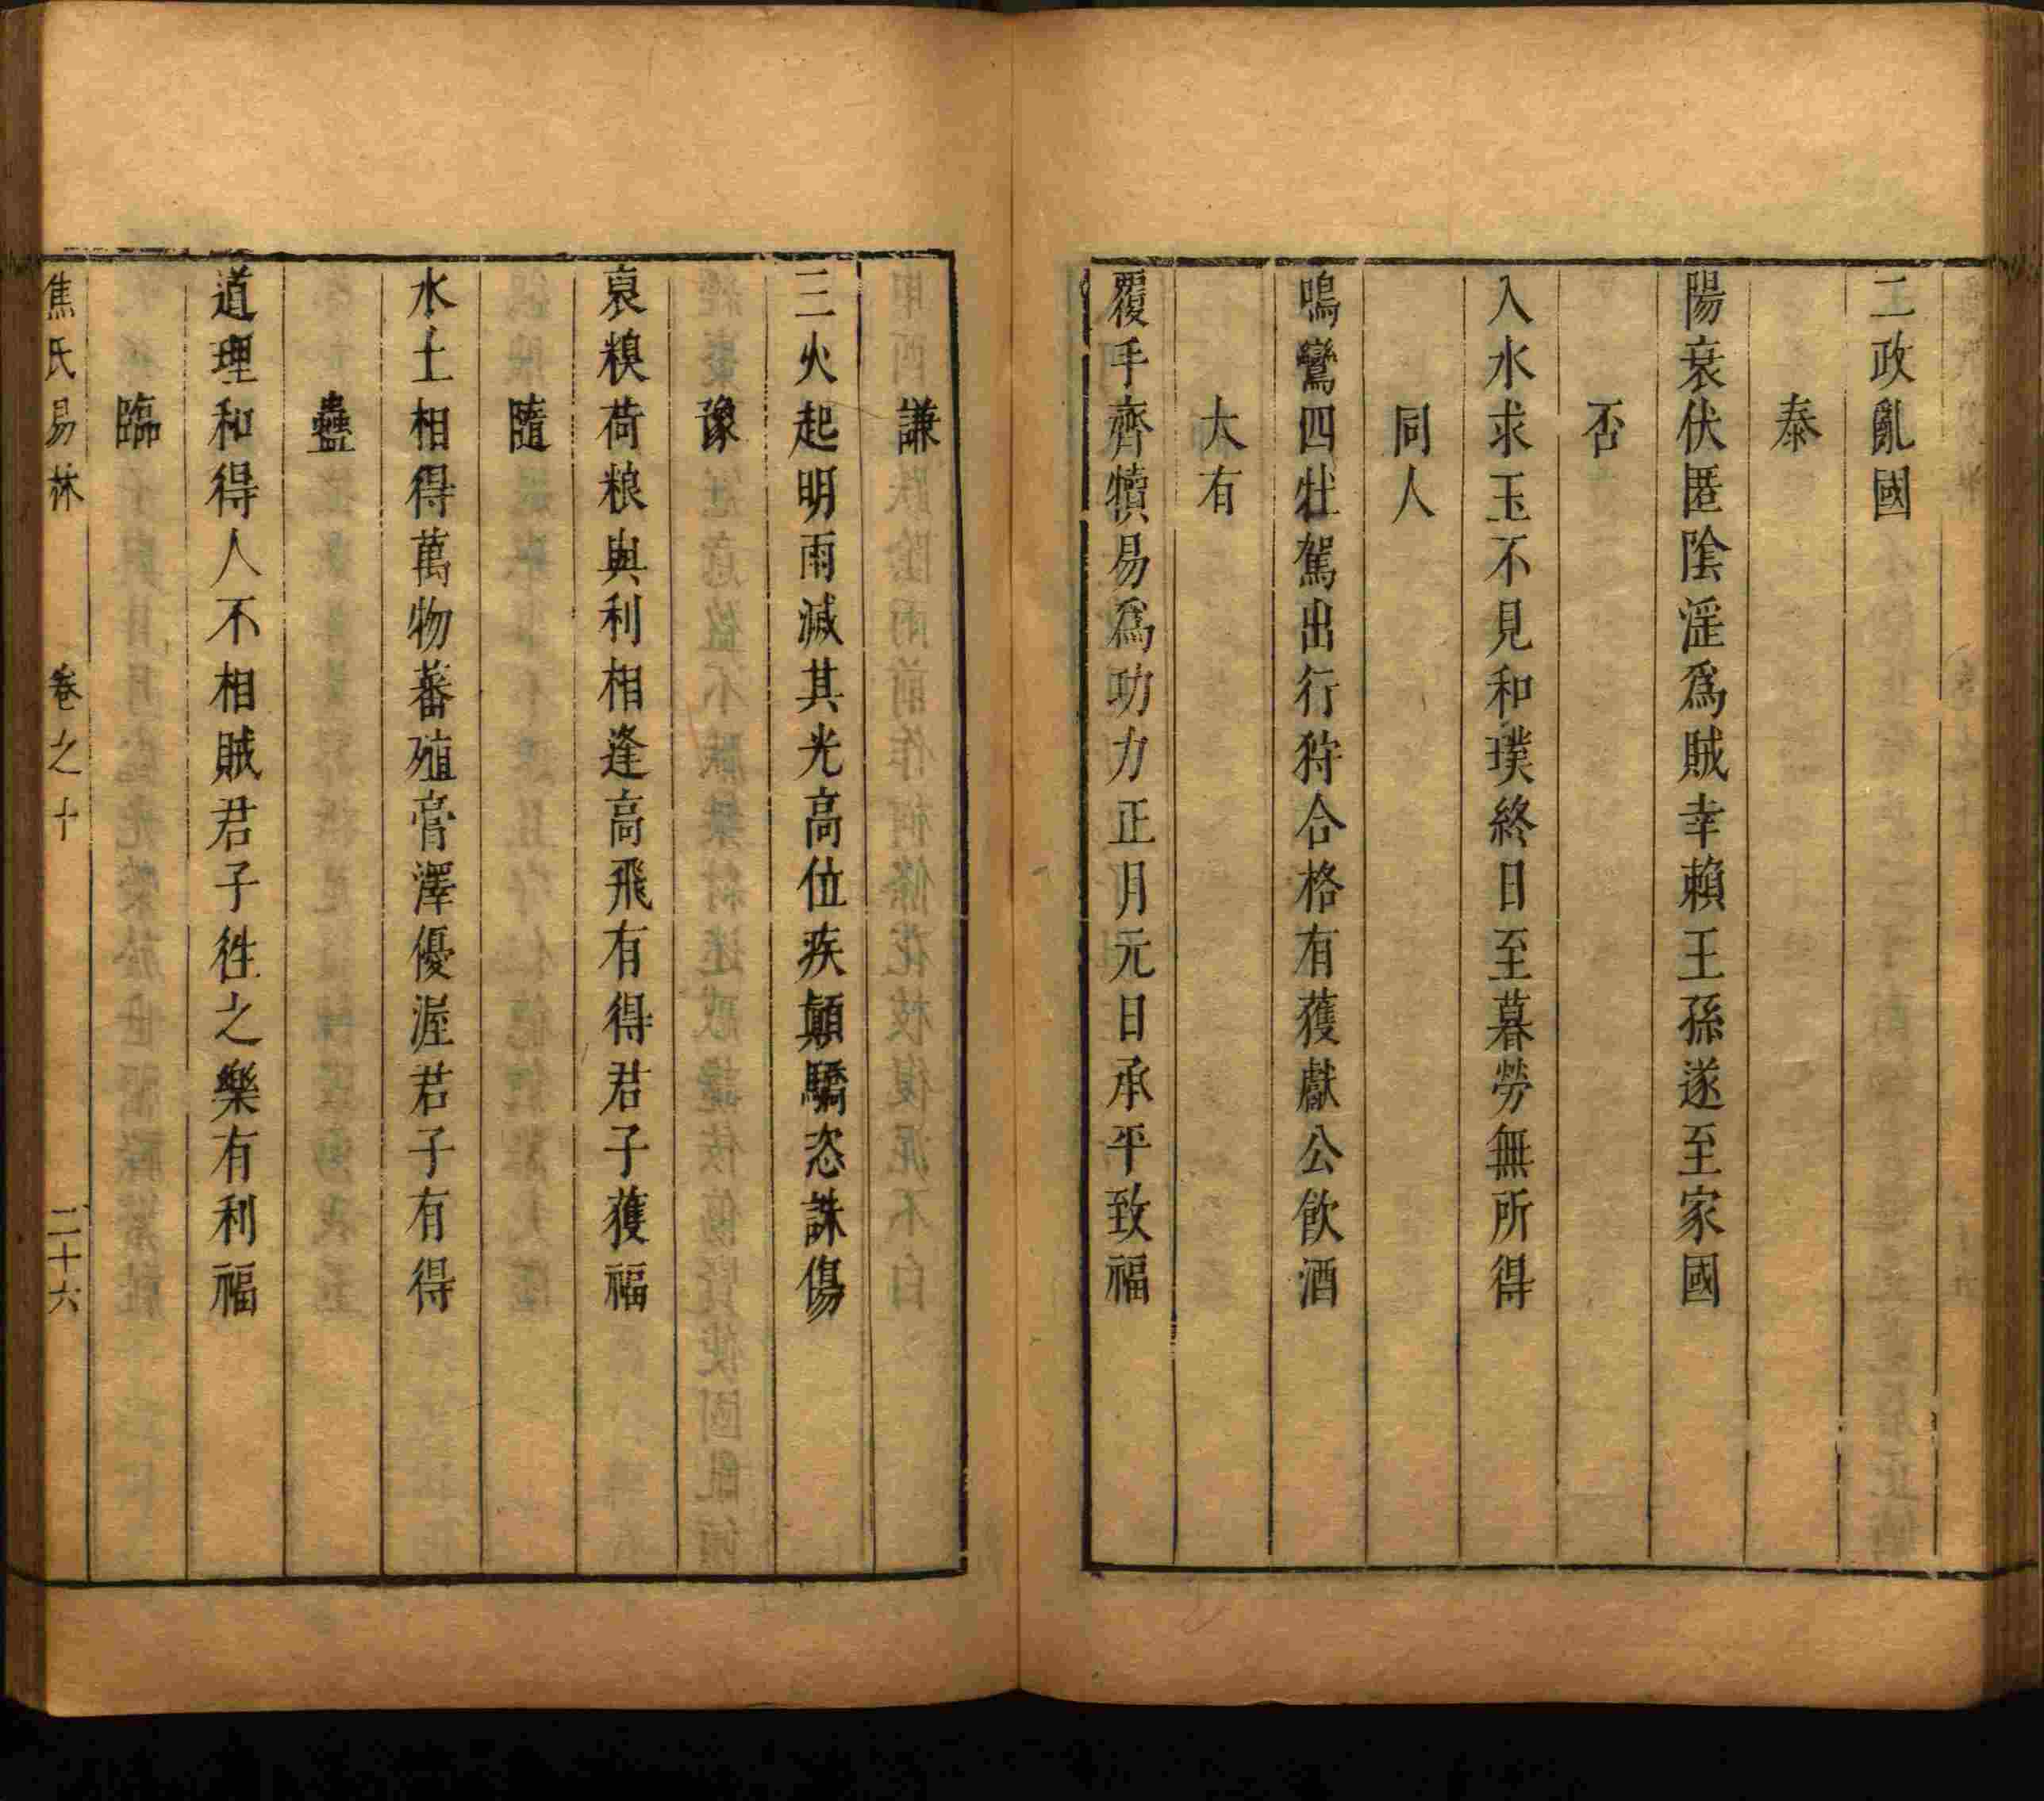 二政亂國
泰
陽衰伏匿陰淫爲賊幸賴王孫遂至家國
否
入水求玉不見和璞終日至暮勞無所得
同人
鳴鸞四牡駕出行狩合格有獲獻公飮酒
大有
覆手齊犢易爲功力正月元日承平致福
謙
三火起明雨滅其光高位疾顛驕恣誅傷
豫
裒糗荷粮與利相逢高飛有得君子獲福
隨
水土相得萬物蕃殖膏澤優渥君子有得
蠱
道理和得人不相賊君子徃之樂有利福
臨
焦氏易林 卷之十 二十六